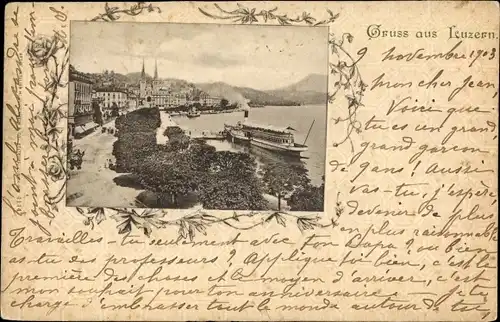 Gruss aus Luzern.
9 novembre 1903
mon cher Jean
Voici que
tu es un grand,
grand garçon
de
ans! Aussi
vas-tu, j'espère
devenir de plus
en plus raisonnable
Travailles-tu seulement avec ton Papa? ou bien
as-tu des professeurs? Applique toi bien, c'est la
première des choses et le moyen d'arriver, c'est
mon souhait pour ton anniversaire. je te
charge d'embrasser tout le monde autour de toi,